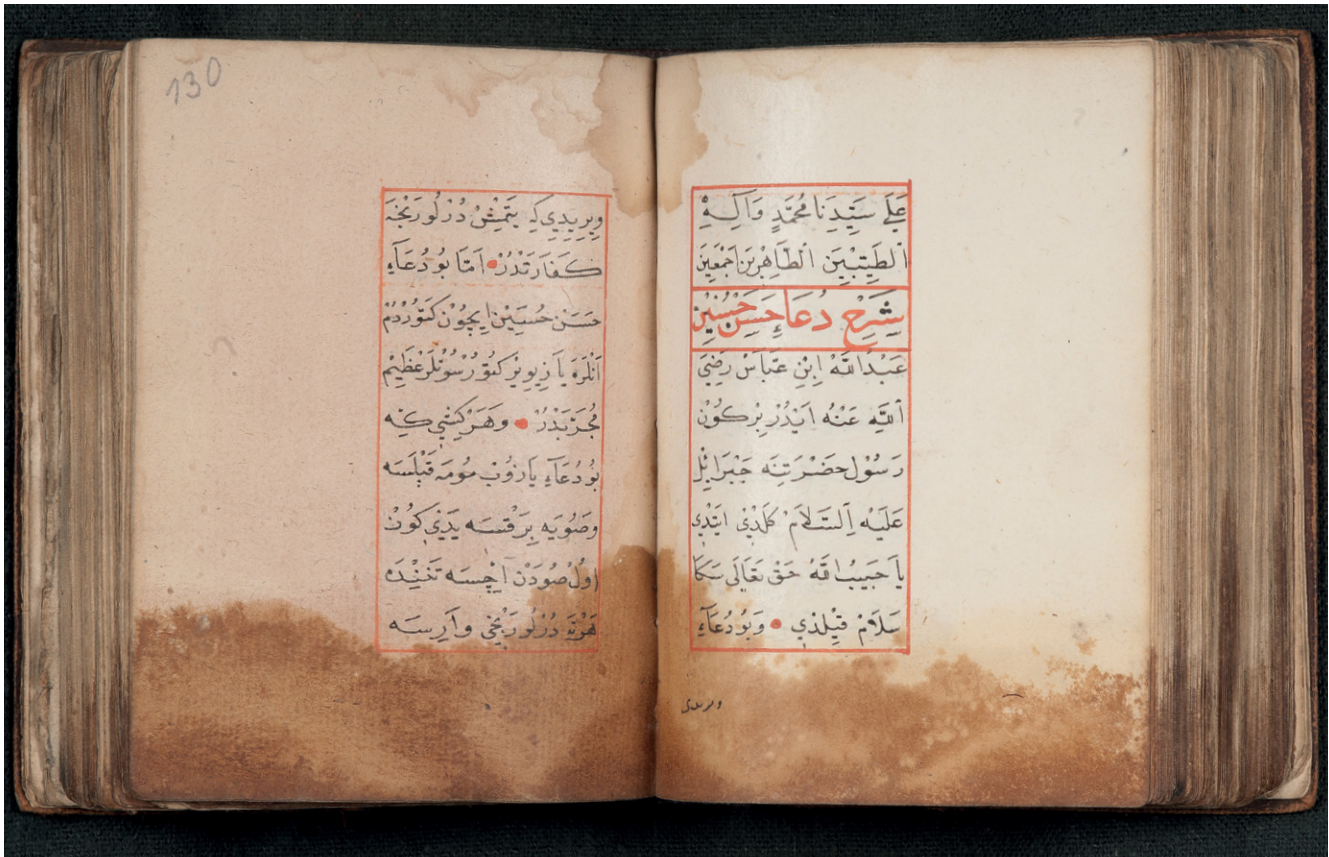 عَلَى سَيِّدِنَا مُحَمَّدٍ وَآلِهِ
الطَّيِّبِينَ الطَّاهِرِينَ اَجْمَعِينَ
شَرْحِ دُعَاءِ حَسَنْ حُسَيْنْ
عَبْدُ اللّٰهْ اِبْنِ عَبَّاسْ رَضِيَ
اللّٰهُ عَنْهُ اَيْدُرْ بِرْ كُونْ
رَسُولْ حَضْرَتِنَه جَبْرَائِلْ
عَلَيْهِ السَّلَامْ كَلْدِي اَيْتْدِي
يَا حَبِيبُ اللّٰهْ حَقْ تَعَالَى سَكَا
سَلَامْ قِيلْدِي • وَبُو دُعَاءِ
ويريدى
130
وِيرِيدِي كِه يَتْمِشْ دُرْلُو رَنْجَه
كَفَارَتْدُرْ • اَمَّا بُو دُعَاءِ
حَسَنْ حُسَيْنْ اِيچُونْ كَتُورْدُمْ
اَنْلَرَه يَازِيوِيرْ كَتُورْسُونْلَرْ عَظِيمْ
مُجَرَّبْدُرْ • وَهَرْ كِشِي كِه
بُو دُعَاءِ يَازُوبْ مُومَه قَپْلَسَه
وَصُويَه بِرَقْسَه يَدِي كُونْ
اُولْ صُودَنْ اِچْسَه تَنِنْدَه
هَرْ نَه دُرْلُو رَنْجِي وَارِسَه